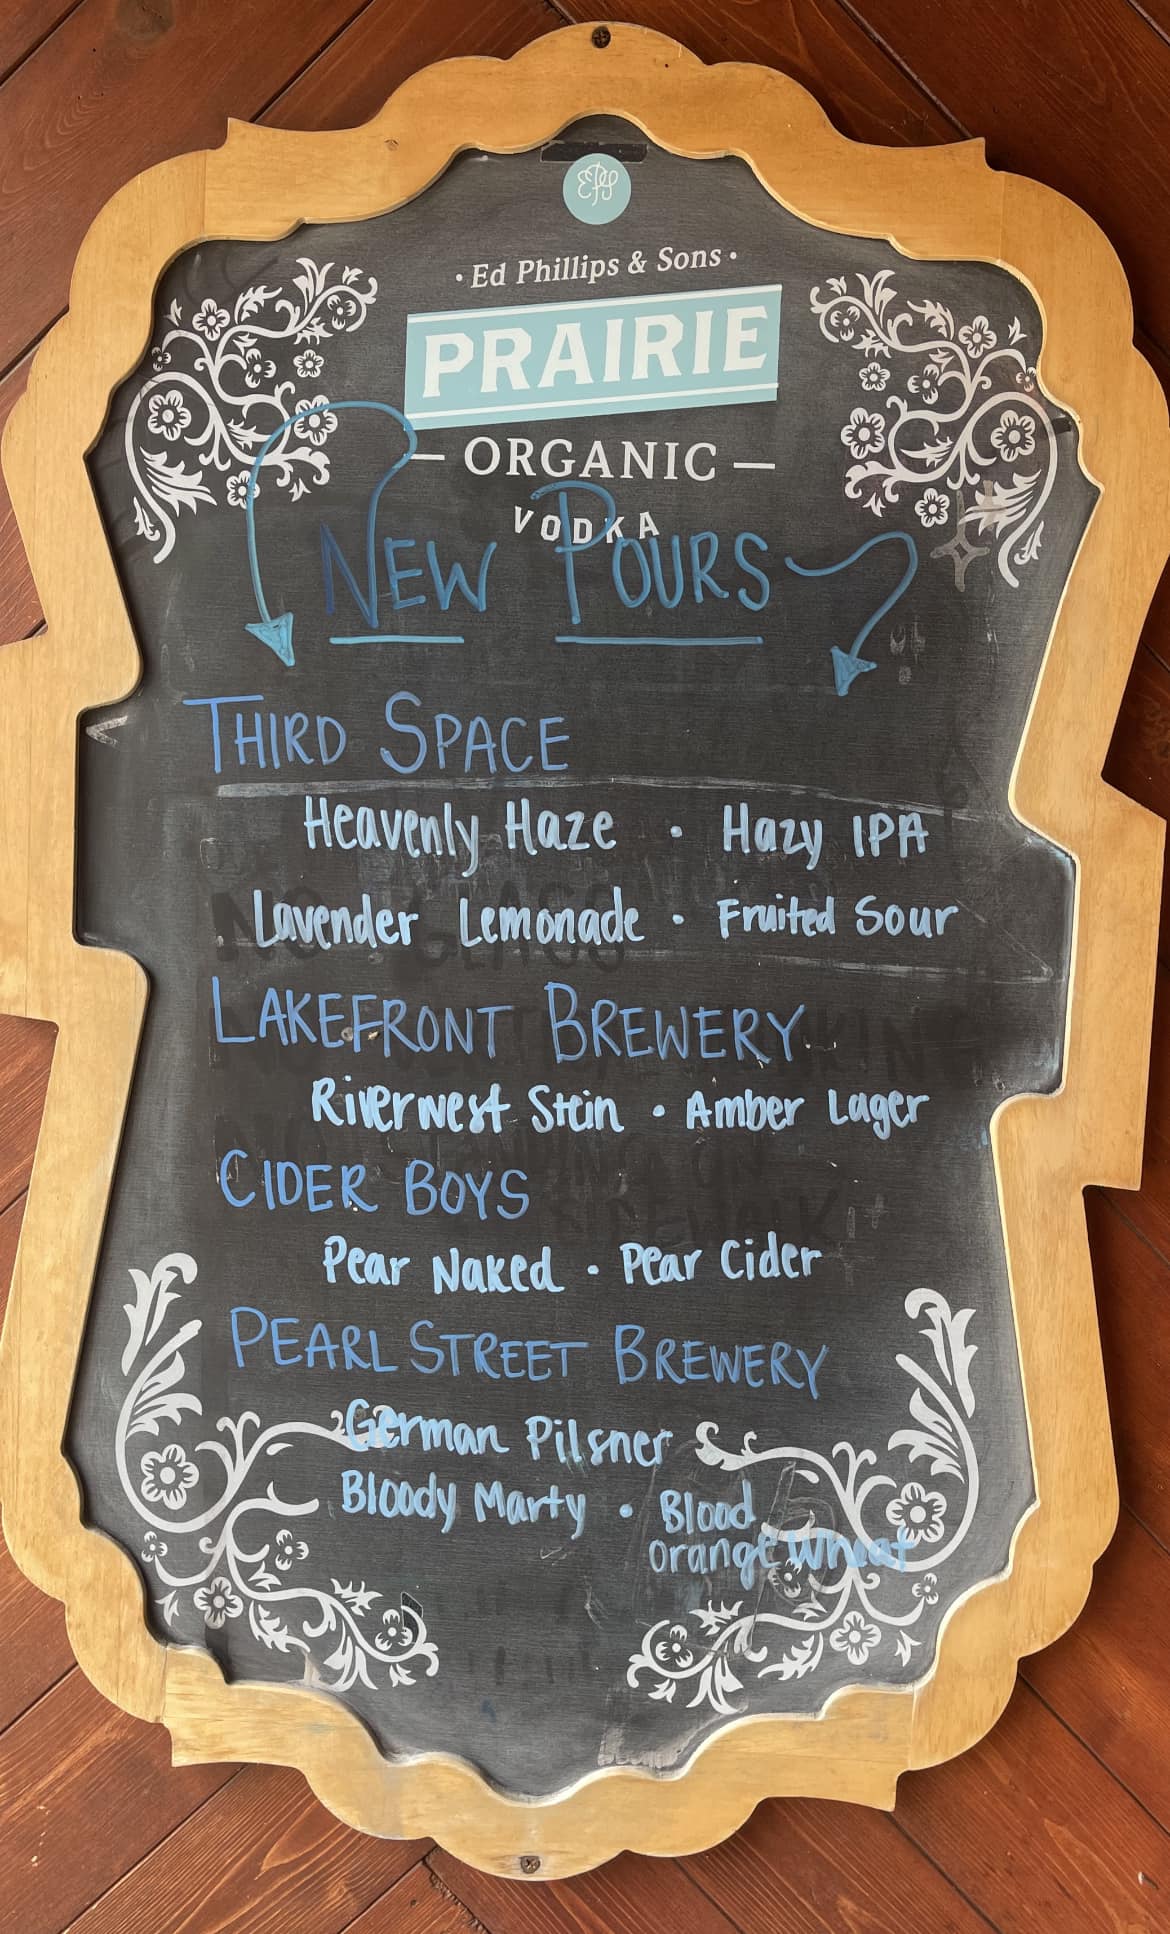 EPS
· Ed Phillips & Sons ·
PRAIRIE
— ORGANIC —
VODKA
NEW POURS
THIRD SPACE
Heavenly Haze · Hazy IPA
Lavender Lemonade · Fruited Sour
LAKEFRONT BREWERY
Riverwest Stein · Amber Lager
CIDER BOYS
Pear Naked · Pear Cider
PEARL STREET BREWERY
German Pilsner
Bloody Marty · Blood
orange Wheat